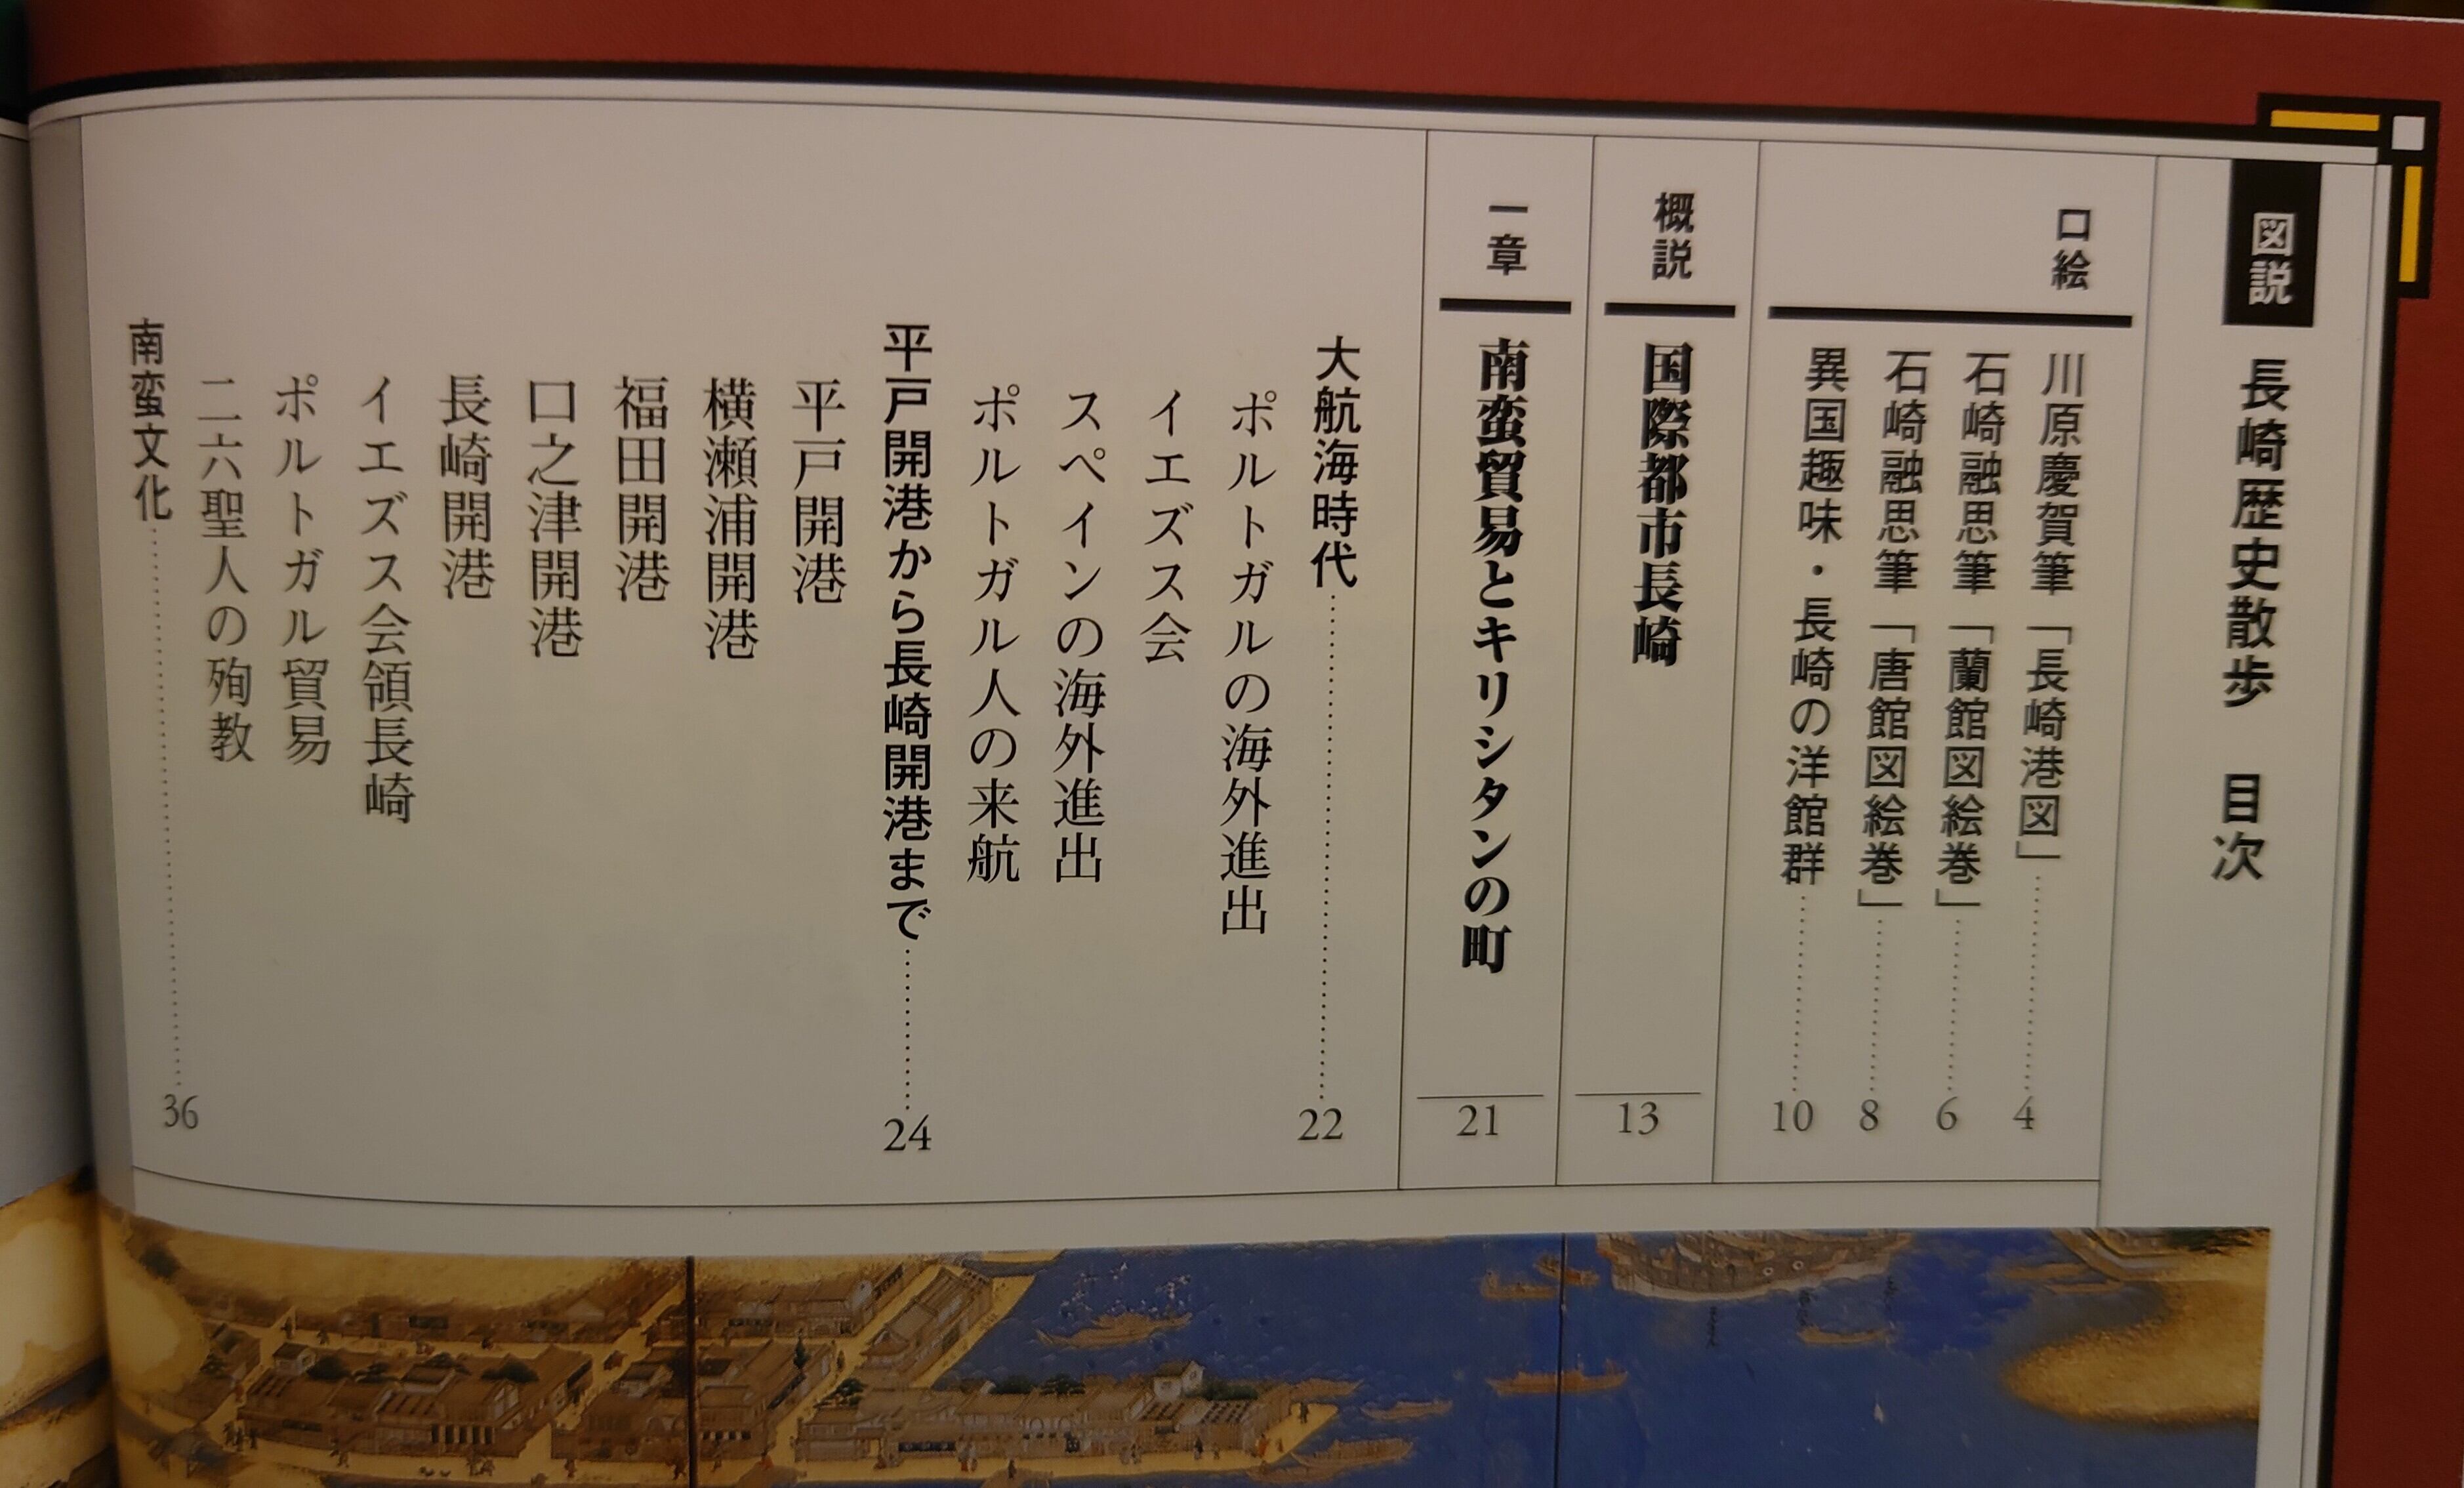 図説 長崎歴史散歩 目次
口絵
川原慶賀筆「長崎港図」 4
石崎融思筆「蘭館図絵巻」 6
石崎融思筆「唐館図絵巻」 8
異国趣味・長崎の洋館群 10
概説 国際都市長崎 13
一章 南蛮貿易とキリシタンの町 21
大航海時代 22
ポルトガルの海外進出
イエズス会
スペインの海外進出
ポルトガル人の来航
平戸開港から長崎開港まで 24
平戸開港
横瀬浦開港
福田開港
口之津開港
長崎開港
イエズス会領長崎
ポルトガル貿易
二六聖人の殉教
南蛮文化 36